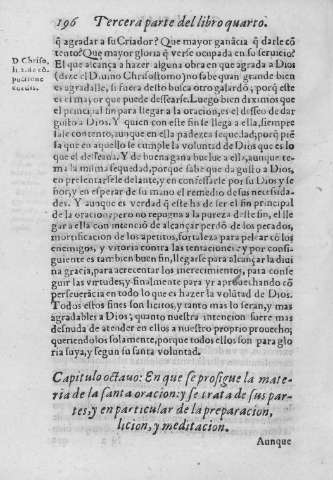 196 Tercera parte del libro quarto.
q̃ agradar a su Criador? Que mayor ganãcia q̃ darle cõ
tento? Que mayor gloria q̃ verse ocupada en su seruicio?
D. Chriso.
El que alcança a hazer alguna obra en que agrada a Dios
(dize el Diuino Chrisostomo) no sabe quan grande bien
es agradalle, si fuera desto busca otro galardõ; porq̃ este
es el mayor que puede dessearse. Luego bien diximos que
el principal fin para llegar a la oracion, es el desseo de dar
gusto a Dios. Y quien con este fin se llega a ella, siempre
sale contento, aunque en ella padezca sequedad, porq̃ piẽ
sa que en aquello se cumple la voluntad de Dios que es lo
que el desseaua. Y de buena gana buelue a ella, aunque te-
ma la misma sequedad, porque sabe que da gusto a Dios,
en presentarsele delante, y en confessarle por su Dios y se
ñor, y en esperar de su mano el remedio de sus necessida-
des. Y aunque es verdad q̃ este ha de ser el fin principal
de la oracion, pero no repugna a la pureza deste fin, el lle
gar a ella con intento de alcançar perdõ de los pecados,
mortificacion de los apetitos, fortaleza para pelear cõ los
enemigos, y vitoria contra las tentaciones: y por consi-
guiente es tambien buen fin, llegarse para alcançar la diui
na gracia, para acrecentar los merecimientos, para conse
guir las virtudes, y finalmente para yr aprouechando cõ
perseuerãcia en todo lo que es hazer la volũtad de Dios.
Todos estos fines son licitos, y tanto mas lo seran, y mas
agradables a Dios; quanto nuestra intencion fuere mas
desnuda de atender en ellos a nuestro proprio prouecho;
queriendolos solamente, porque todos ellos son para glo
ria suya, y segun su santa voluntad.
Capitulo octauo: En que se prosigue la mate-
ria de la santa oracion: y se trata de sus par-
tes, y en particular de la preparacion,
licion, y meditacion.
Aunque